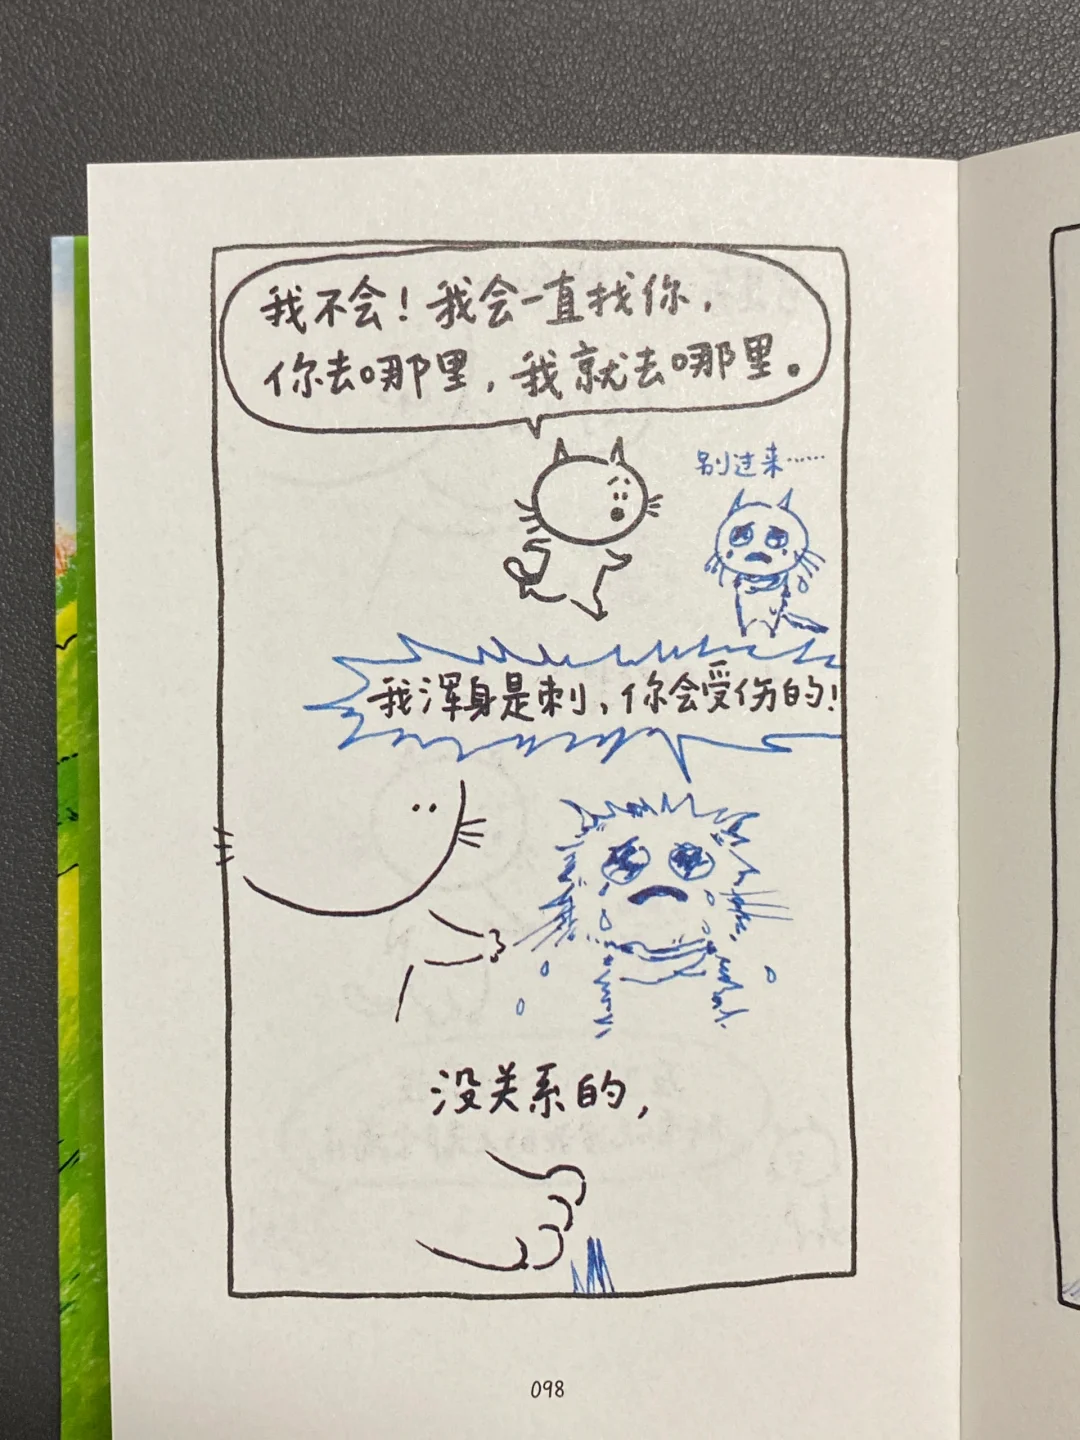 我不会！我会一直找你，
你去哪里，我就去哪里。
别过来……
我浑身是刺，你会受伤的！
没关系的，
098